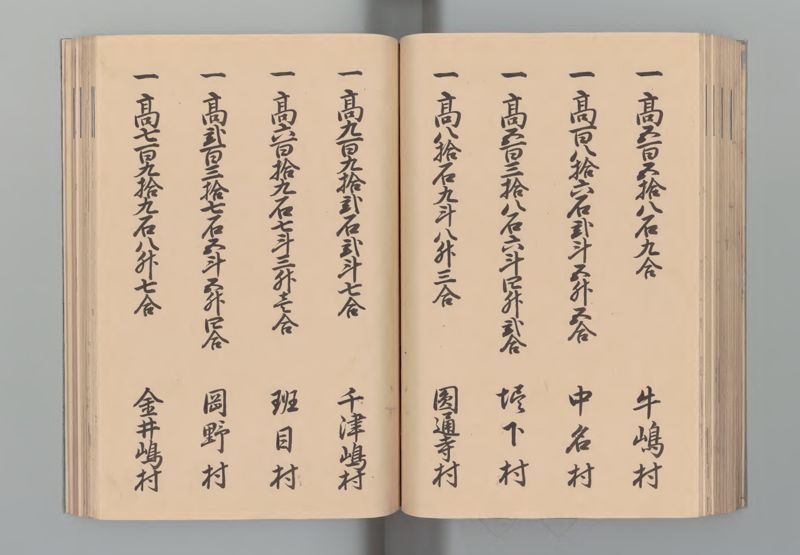 一 高五百五拾八石九合 牛嶋村
一 高百八拾六石弐斗五升五合 中名村
一 高五百三拾八石六斗四升弐合 壗下村
一 高八拾石九斗八升三合 圓通寺村
一 高九百九拾弐石弐斗七合 千津嶋村
一 高六百拾九石七斗三升壱合 班目村
一 高弐百三拾七石五斗五升四合 岡野村
一 高七百九拾九石八升七合 金井嶋村